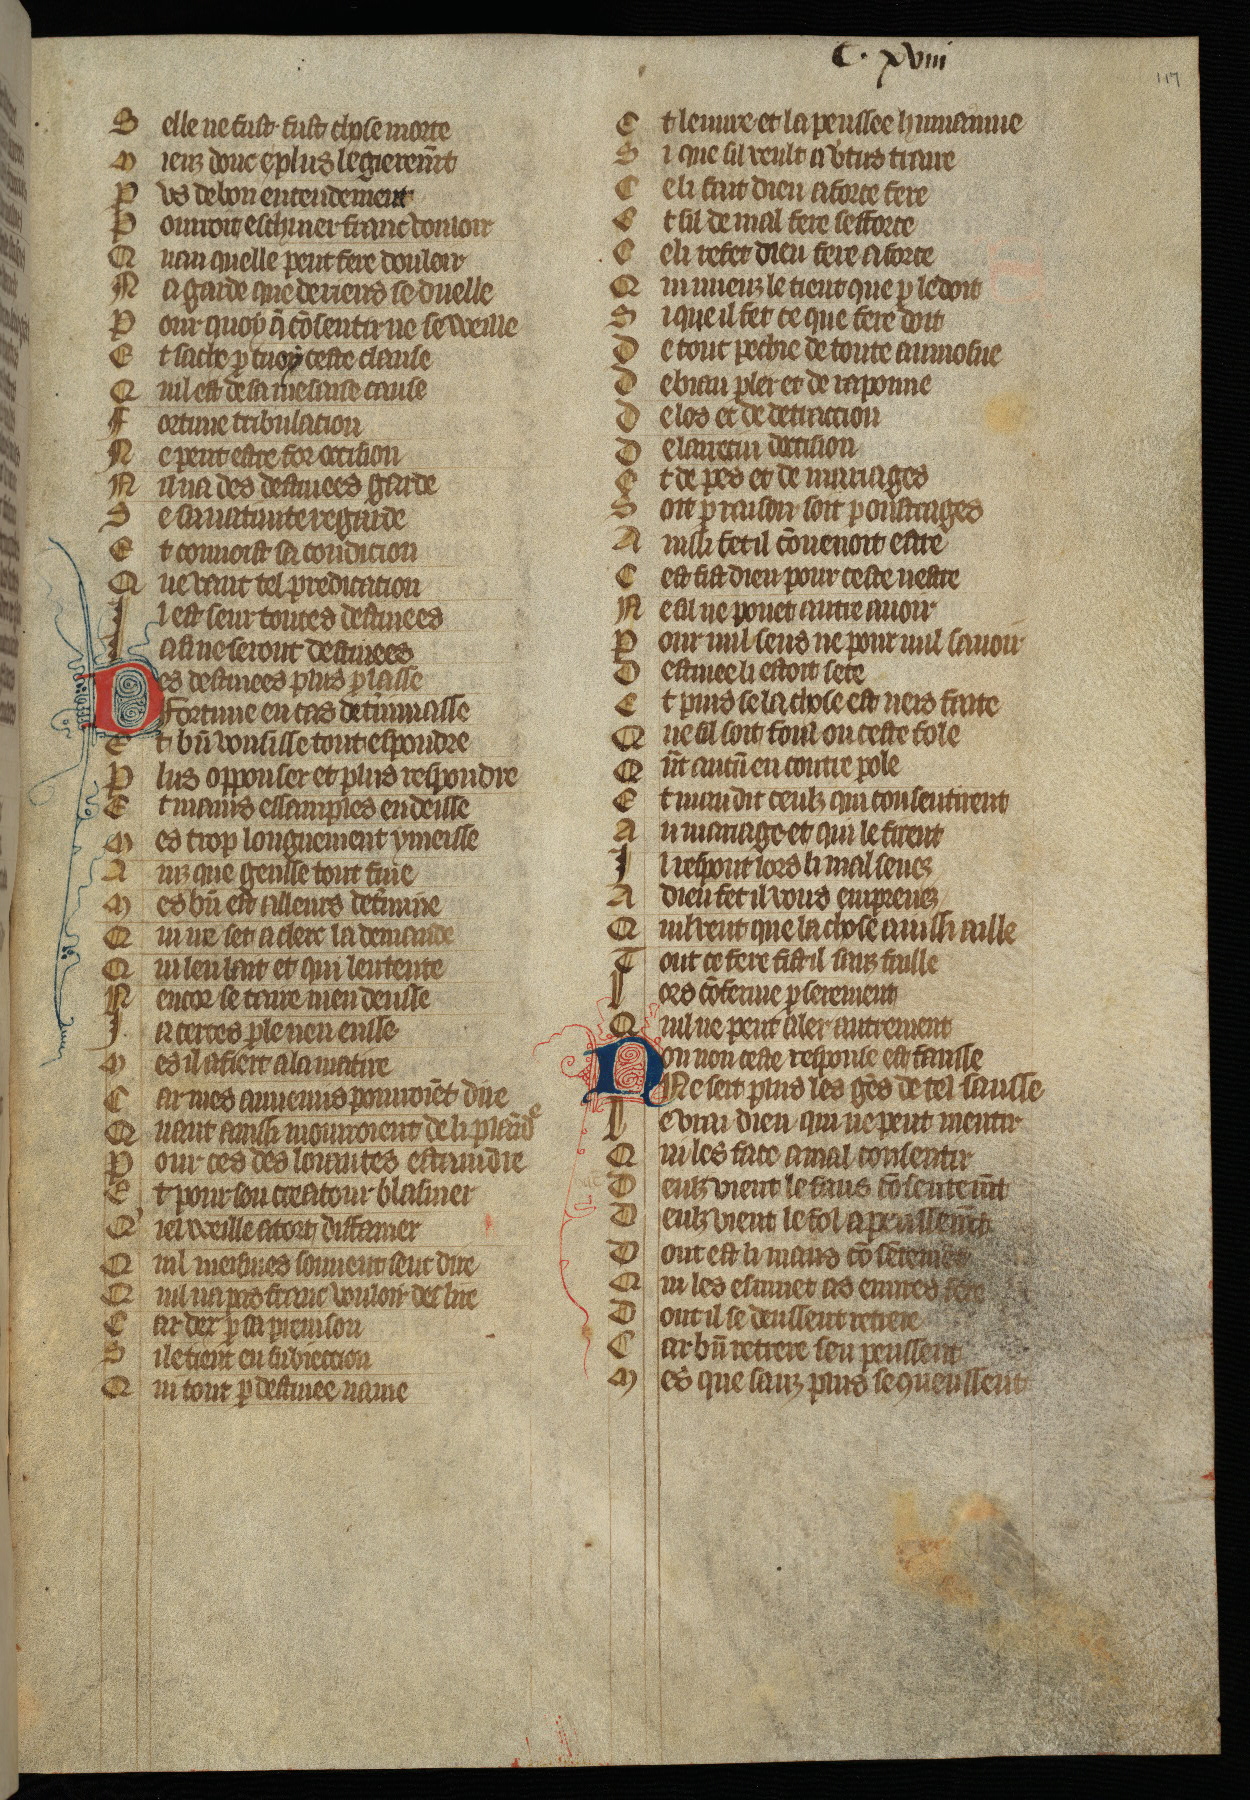 C. xviii
117
S elle ne fust fust chose morte
M ieus donc et plus legierem̄t
P us de bon entendement
P ourroit eschiuer franc vouloir
Q uan quelle peut fere douloir
N a garde que de riens se duelle
P our quoy q̄ cōsentir ne se vveille
E t sache p tuoy ceste clause
Q uil est de sa mesaise cause
F ortune tribulation
N e peut estre for occision
N il na des destinees garde
S e sa naitante regarde
E t connoist sa condicion
Q ue vaut tel predication
I l est seur toutes destinees
J a si ne seront destinees
Des destinees plus plasse
Fortune en cas det'minasse
E t bn̄ vousisse tout espondre
P lus opponser et plus respondre
E t mains essamples en deisse
M es trop longuement y meisse
A ins que geusse tout fine
M es bn̄ est ailleurs det'mine
Q ui ne set a clerc la demande
Q ui leu lait et qui lentente
N encor se taire men deusse
J a certes ple nen eusse
M es il afiert a la matire
C ar mes annemis pourroiēt dire
Q uant aussi mourroient de li plaīdre
P our ces des loiautes estaindre
E t pour son creatour blasmer
Q iel vveille a tort diffamer
Q uil meismes souuent seut dire
Q uil na pas franc vouloir deslire
C ar der p sa preuison
S i le tient en subiection
Q ui tout p destinee name
E t leuure et la penssee humainne
S i que sil veult a v̄tus traire
C e li fait dieu a force fere
E t sil de mal fere sefforce
C e li refet dieu fere a force
Q ui mieus le tient que p le doit
S i que il fet ce que fere doit
D e tout pechie de toute aumosne
D e biau pler et de raponne
D e los et de detraction
D e larrecin doccision
E t de pes et de mariages
S oit p raison soit p oustrages
A ussi fet il cōuenoit estre
C est fist dieu pour ceste nestre
N e sil ne pouet autre auoir
P our nul sens ne pour nul sauoir
D estinee li estoit sete
E t puis se la chose est mers faite
Q ue sil soit foul ou ceste fole
Q n̄t aucū en contre pole
E t maudit ceuls qui consentirent
A u mariage et qui le firent
J l respont lors li mal senes
A dieu fet il vous emprenes
Q uil veut que la chose aussi aille
T out ce fere fist il sans faille
L ors cōferme p serement
Q uil ne peut aler autrement
Non non ceste response est fausse
Ne sert plus les gēs de tel sausse
L e vrai dieu qui ne peut mentir
Q ui les face a mal consentir
D euls vient le faus cōsentem̄t
D euls vient le fol apenssem̄t
D ont est li maus cōsentemēs
Q ui les esmuet as euures fere
D ont il se deussent retrere
C ar bn̄ retrere sen peussent
M es que sans plus se queneussent